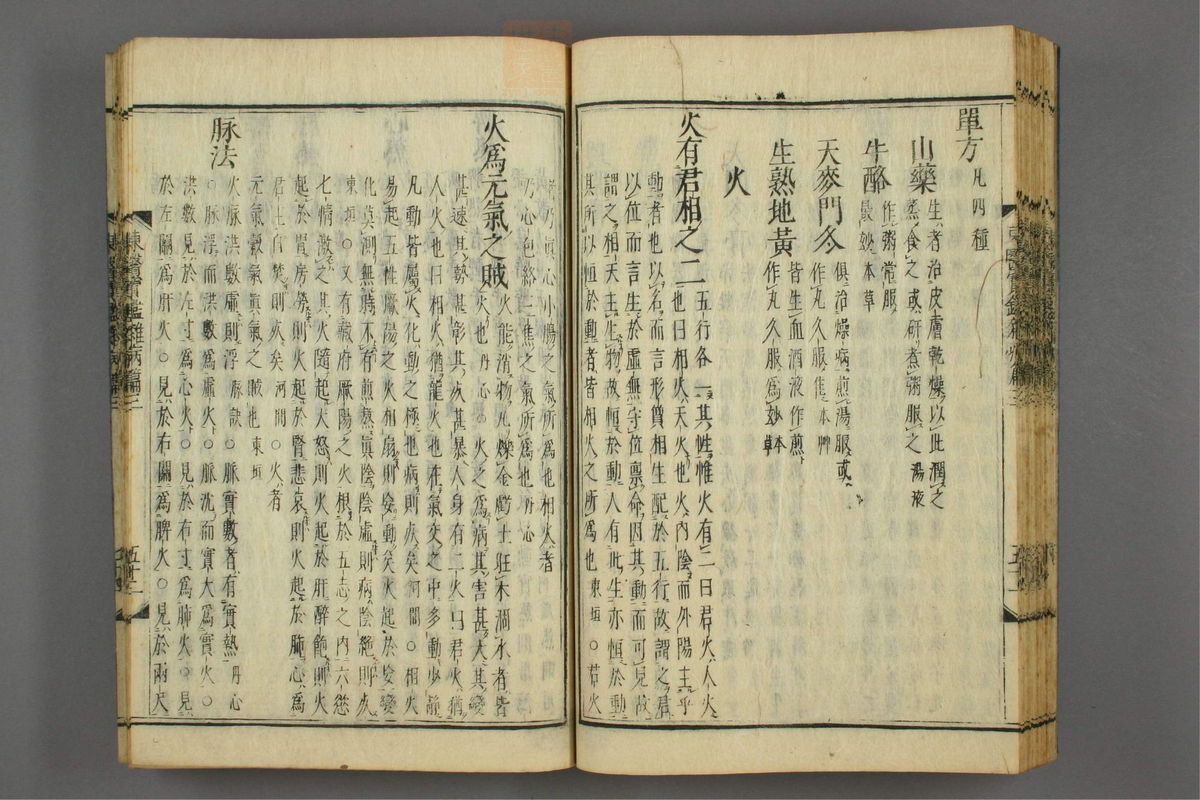 單方凡四種
山藥生者治皮膚乾燥以此潤之
蒸食之或研煮粥服之湯液
牛酪作粥常服
最妙本草
天麥門冬俱治燥病煎湯服或
作丸久服佳本艸
生熟地黃皆生血酒液作煎
作丸久服爲妙本草
火
火有君相之二五行各一其性惟火有二曰君火人火
也曰相火天火也火內陰而外陽主乎
動者也以名而言形質相生配於五行故謂之君
以位而言生於虛無守位稟命因其動而可見故
謂之相天主生物故恒於動人有此生亦恒於動
其所以恒於動者皆相火之所爲也東垣○君火
者乃眞心小腸之氣所爲也相火者
乃心包絡三焦之氣所爲也丹心
火爲元氣之賊火能消物凡爍金虧土旺木涸水者皆
火也丹心○火之爲病其害甚大其變
甚速其勢甚彰其死甚暴人身有二火曰君火猶
人火也曰相火猶龍火也在氣交之中多動少靜
凡動皆屬火化動之極也病則死矣河間○相火
易起五性厥陽之火相扇則妄動矣火起於妄變
化莫測無時不有煎熬眞陰陰虛則病陰絶則死
東垣○又有藏府厥陽之火根於五志之內六慾
七情激之其火隨起大怒則火起於肝醉飽則火
起於胃房勞則火起於腎悲哀則火起於肺心爲
君主自焚則死矣河間○火者
元氣穀氣眞氣之賊也東垣
脉法火脉洪數虛則浮脉訣○脉實數者有實熱丹心
○脉浮而洪數爲虛火○脉沈而實大爲實火○
洪數見於左寸爲心火○見於右寸爲肺火○見
於左關爲肝火○見於右關爲脾火○見於兩尺
東醫寶鑑雜病篇三